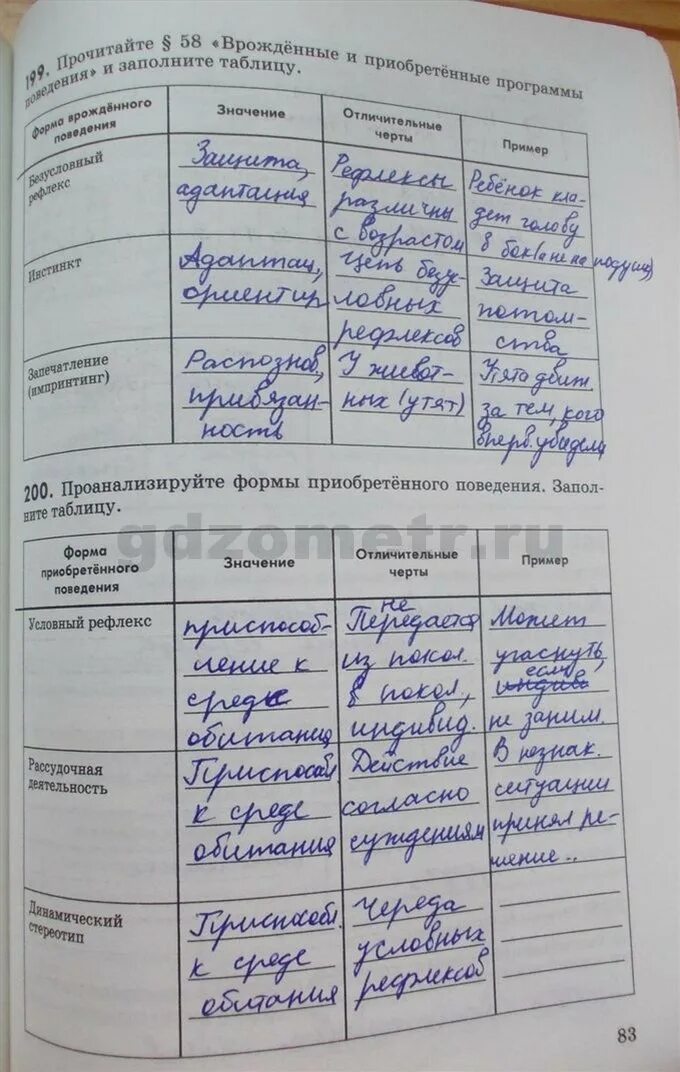 199. Прочитайте § 58 «Врождённые и приобретённые программы
поведения» и заполните таблицу.
Форма врождённого
поведения
Значение
Отличительные
черты
Пример
Безусловный
рефлекс
Защита,
адаптация
Рефлексы
различны
с возрастом
Ребёнок кла-
дет голову
в бок (а не на подушк)
Инстинкт
Адаптац,
ориентир
Цепь безу-
ловных
рефлексов
Защита
потом-
ства
Запечатление
(импринтинг)
Распознов,
привязан-
ность
У живот-
ных (утят)
Утята движ.
за тем, кого
вперв. увидели
200. Проанализируйте формы приобретённого поведения. Запол-
ните таблицу.
gdzometr.ru
Форма
приобретённого
поведения
Значение
Отличительные
черты
Пример
Условный рефлекс
приспособ-
ление к
среде
обитания
не
Передается
из покол.
в покол.,
индивид.
Может
угаснуть,
если
не заним.
Рассудочная
деятельность
Приспособл.
к среде
обитания
Действие
согласно
суждениям
В незнак.
ситуации
принял ре-
шение..
Динамический
стереотип
Приспособл.
к среде
обитания
Череда
условных
рефлексов
83